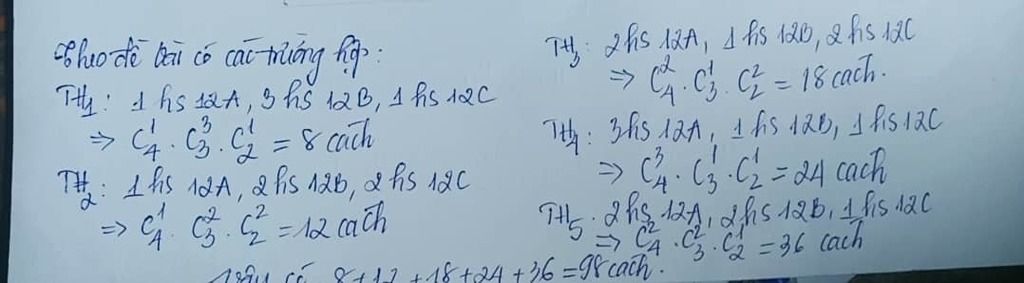 Theo đề bài có các trường hợp:
TH₁: 1 hs 12A, 3 hs 12B, 1 hs 12C
=> C₄¹ . C₃³ . C₂¹ = 8 cách
TH₂: 1 hs 12A, 2 hs 12B, 2 hs 12C
=> C₄¹ . C₃² . C₂² = 12 cách
TH₃: 2 hs 12A, 1 hs 12B, 2 hs 12C
=> C₄² . C₃¹ . C₂² = 18 cach.
TH₄: 3 hs 12A, 1 hs 12B, 1 hs 12C
=> C₄³ . C₃¹ . C₂¹ = 24 cach
TH₅. 2 hs 12A, 2 hs 12B, 1 hs 12C
=> C₄² . C₃² . C₂¹ = 36 cach
Vậy có 8+12+18+24+36 = 98 cach.